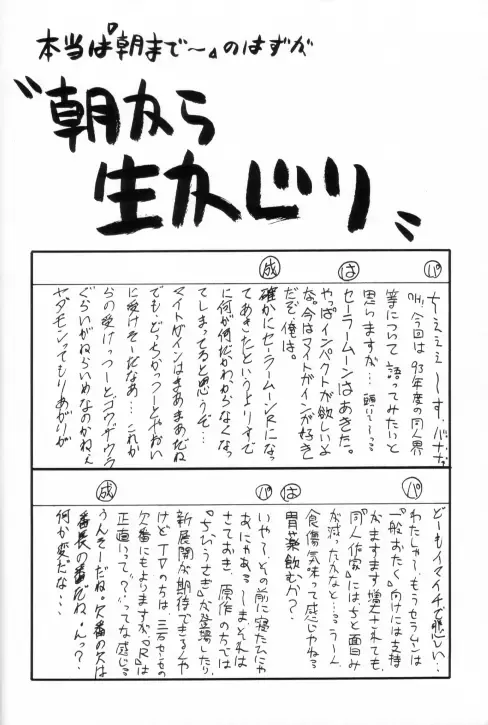 本当は『朝まで〜』のはずが
〝朝から
生かじり〟
パ
ちぇぇぇ〜す。バナナ
『H』今回は93年度の同人界
等について語ってみたいと
思いますが…
は
セーラームーンはあきた。
やっぱインパクトが欲しいよ
な。今はマイトガインが好き
だぞ俺は。
成
確かにセーラームーンRになっ
てあきたというよりすで
に何が何だかわからなくなっ
てしまってると思うぞ…
マイトガインはまあまあだね
でも、どっちかっつーとやおい
に受けそーだなあ…これか
らの受けっつーとゴウザウラ
ぐらいがねらいめなのかねぇ
ヤダモンってもりあがりが
パ
どーもイマイチで悲しい…
わたしゃ〜。もうセラムンは
『一般おたく』向けには支持
がますます増大されても、
『同人作家』にはちと面白み
が減ったかなと…。うーん
食傷気味って感じかねぇ
は
胃薬飲むか?
パ
いや〜、その前に寝たひにゃ
あ、にゃあ。〜ま、それは
さておき、原作の方では
『ちびうさぎ』が登場したり、
新展開が期待できるんや
けどTVのちは、三石さんの
欠番にもよりますが、『R』は
正直いって「?」ってな感じる
成
うんそーだね。欠番の欠は
番長の番だね。んっ?
何か変だな…